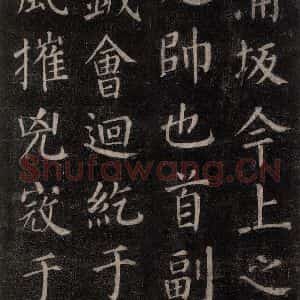 坂今上之
帥也首副
會迴紇于
風摧兇寇于
Shufawang.CN